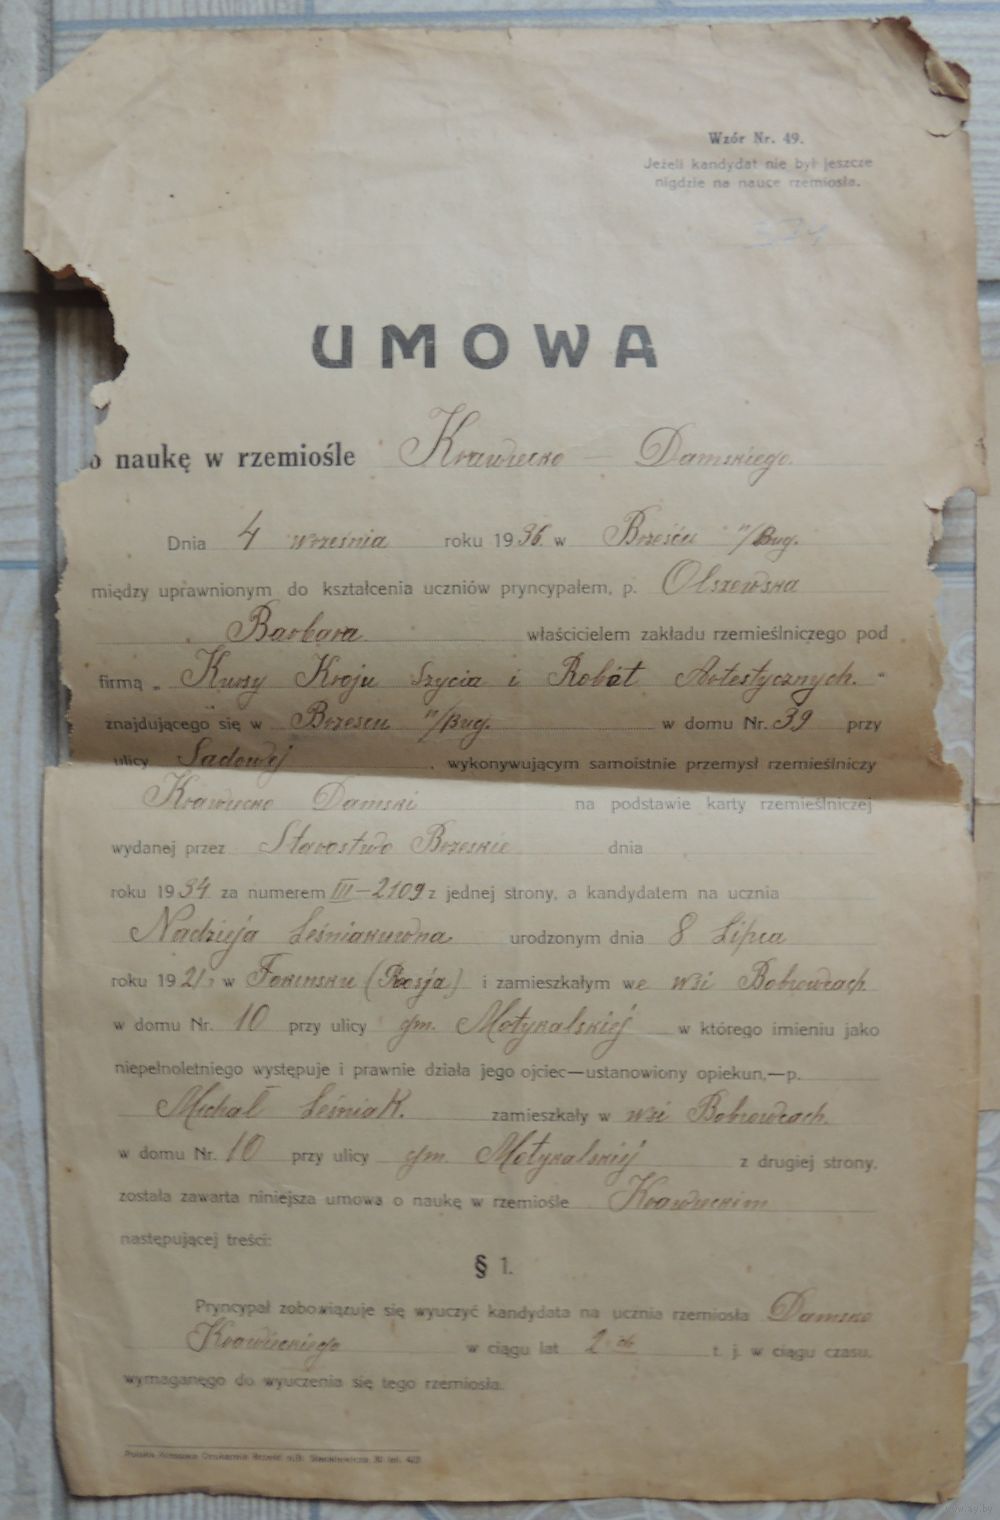 Wzór Nr. 49.
Jeżeli kandydat nie był jeszcze
nigdzie na nauce rzemiosła.
371
UMOWA
o naukę w rzemiośle Krawiecko - Damskiego.
Dnia 4 września roku 1936 w Brześciu n/Bug.
między uprawnionym do kształcenia uczniów pryncypałem, p. Olszewska
Barbara właścicielem zakładu rzemieślniczego pod
firmą „ Kursy Kroju Szycia i Robót Artestycznych. "
znajdującego się w Brzesciu n/Bug. w domu Nr. 39 przy
ulicy Sadowej, wykonywującym samoistnie przemysł rzemieślniczy
Krawiecko Damski na podstawie karty rzemieślniczej
wydanej przez Starostwo Brzeskie dnia
roku 1934 za numerem III-2109 z jednej strony, a kandydatem na ucznia
Nadzieja Leśniakuwna urodzonym dnia 8 Lipca
roku 1921 w (Rosja) i zamieszkałym we wsi Bobrowcach
w domu Nr. 10 przy ulicy gm. Motykalskiej w którego imieniu jako
niepełnoletniego występuje i prawnie działa jego ojciec—ustanowiony opiekun,—p.
Michał Leśniak. zamieszkały w wsi Bobrowcach.
w domu Nr. 10 przy ulicy gm. Motykalskiej z drugiej strony,
została zawarta niniejsza umowa o naukę w rzemiośle Krawieckim
następującej treści:
§ 1.
Pryncypał zobowiązuje się wyuczyć kandydata na ucznia rzemiosła Damsko
Krawieckiego w ciągu lat 2 t. j. w ciągu czasu,
wymaganego do wyuczenia się tego rzemiosła.
Polska Kresowa Drukarnia Brześć n/B.